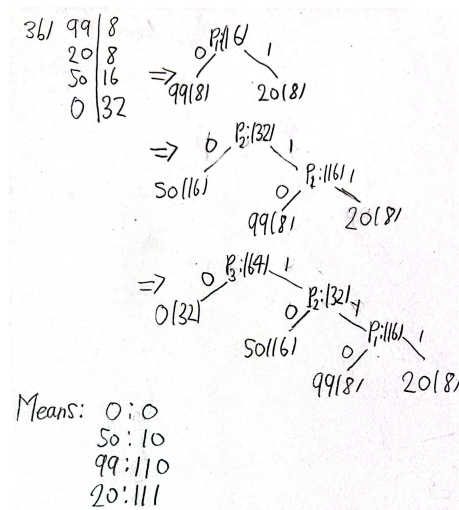 36) 99 | 8
20 | 8
50 | 16
0 | 32
=> P1:(16)
0 1
99(8) 20(8)
=> P2:(32)
0 1
50(16) P2:(16)
0 1
99(8) 20(8)
=> P3:(64)
0 1
0(32) P2:(32)
0 1
50(16) P1:(16)
0 1
99(8) 20(8)
Means: 0:0
50:10
99:110
20:111